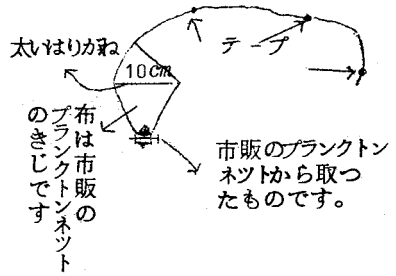 テープ
太いはりがね
10cm
布は市販の
プランクトンネツト
のきじです
市販のプランクト
ンネツトから取つ
たものです。